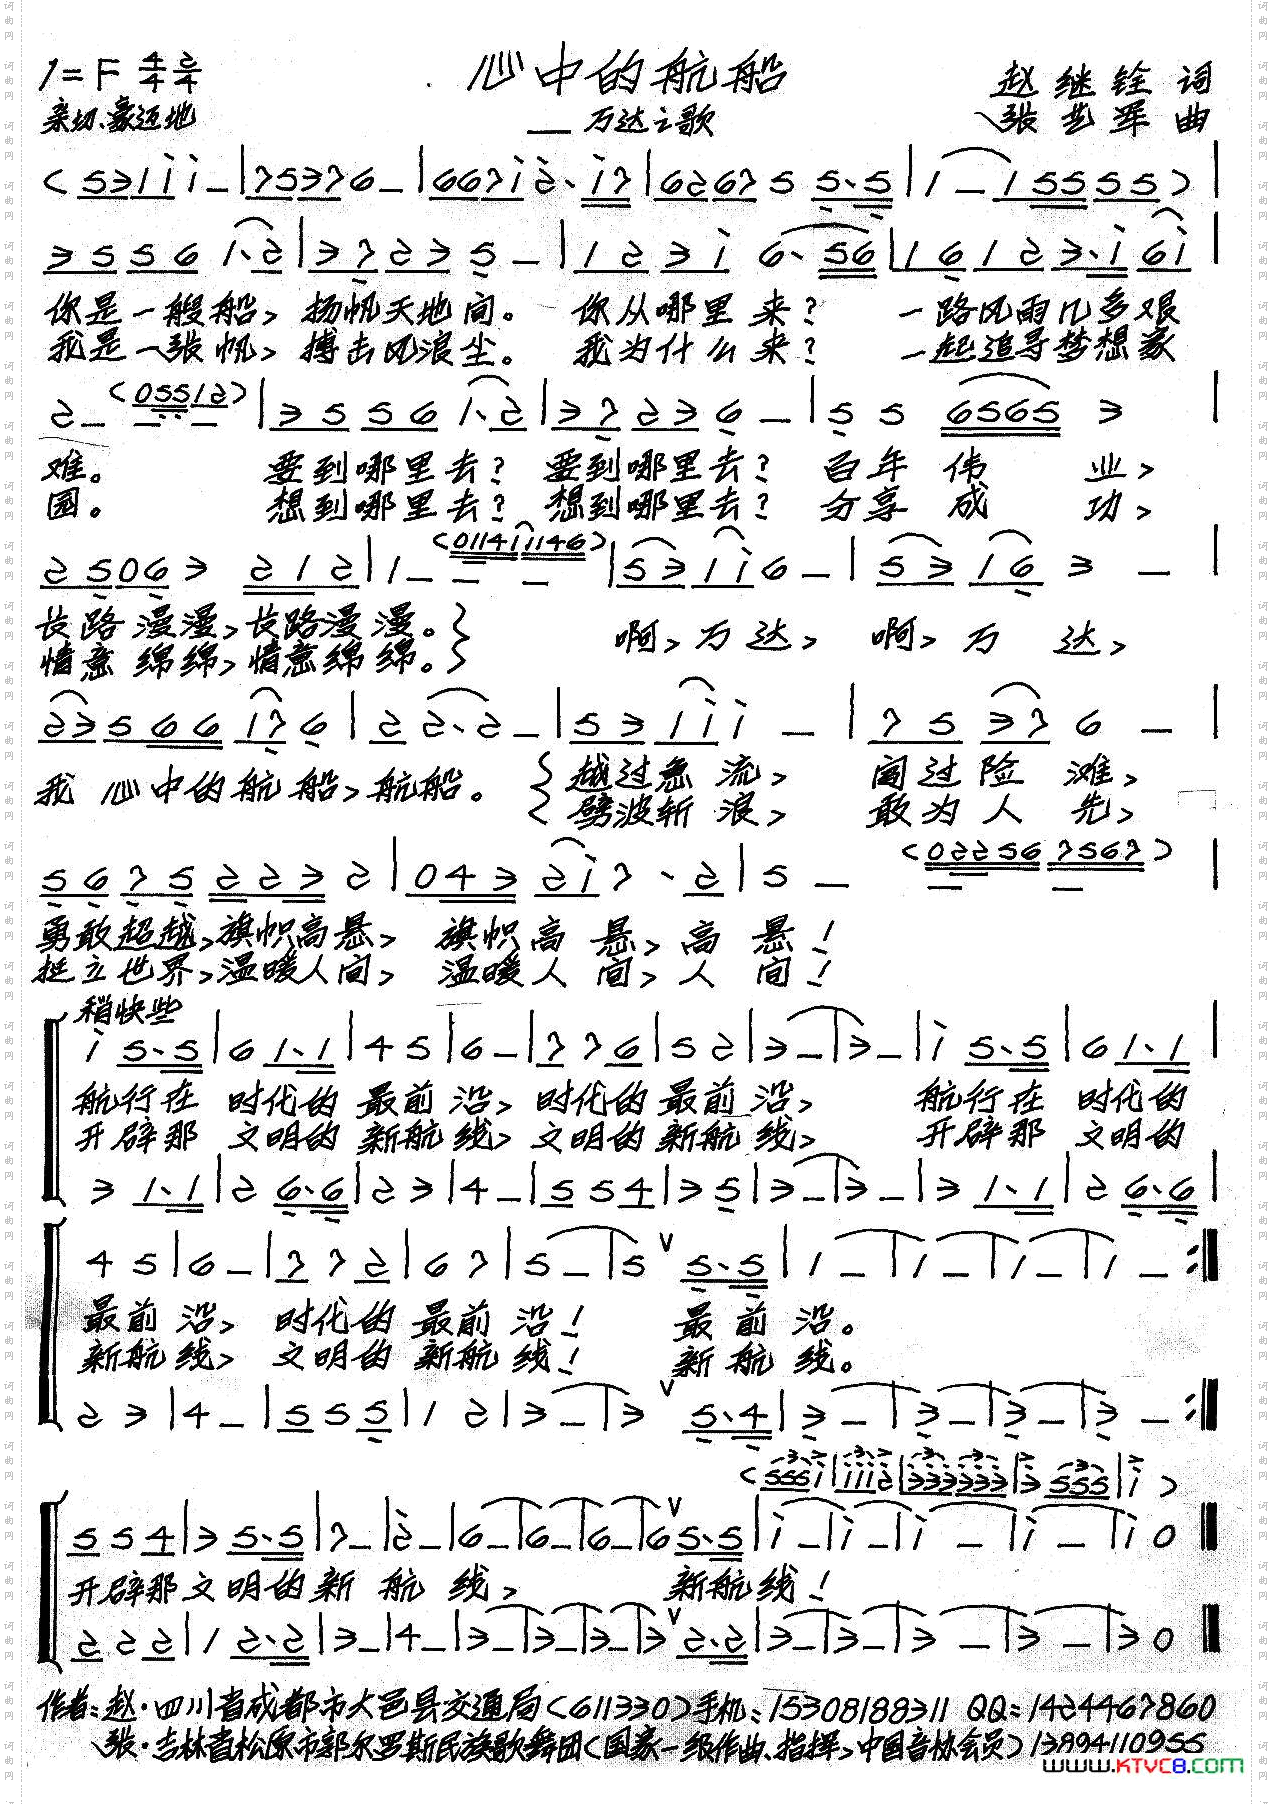 心中的航船
1=F 4/4 2/4
赵继铨 词
亲切、豪迈地
——万达之歌
张艺军 曲
(531i i - | 7537 6 - | 667i 2· i7 | 6267 5 5·5 | 1 - 1555 55) |
35 56 1·2 | 37 23 5 - | 12 3i 6· 56 | 16 12 3·i 6i |
你是一艘船, 扬帆天地间。 你从哪里来? 一路风雨几多艰
我是一张帆, 搏击风浪尘。 我为什么来? 一起追寻梦想家
2 - (05512) | 35 56 1·2 | 37 23 6 - | 5 5 6565 3 |
难。 要到哪里去? 要到哪里去? 百年伟业,
园。 想到哪里去? 想到哪里去? 分享成功,
25 06 3 212 | 1 - (0114i 1146) | 53 1i 6 - | 53 16 3 - |
长路漫漫, 长路漫漫。 啊, 万达, 啊, 万达,
情意绵绵, 情意绵绵。
23 566 17 6 | 2 2·2 - | 53 1i i - | 75 37 6 - |
我心中的航船, 航船。 越过急流, 闯过险滩,
劈波斩浪, 敢为人先,
56 75 223 2 | 043 2i 7· 2 | 5 - (02256 7567) |
勇敢超越, 旗帜高悬, 旗帜高悬, 高悬!
挺立世界, 温暖人间, 温暖人间, 人间!
稍快些
i 5·5 | 6 1·1 | 4 5 | 6 - | 7 7 6 | 5 2 | 3 - | 3 - | i 5·5 | 6 1·1 |
航行在 时代的 最前沿, 时代的最前沿, 航行在 时代的
开辟那 文明的 新航线, 文明的新航线, 开辟那 文明的
3 1·1 | 2 6·6 | 2 3 | 4 - | 5 5 4 | 3 5 | 3 - | 3 - | 3 1·1 | 2 6·6 |
4 5 | 6 - | 7 7 2 | 6 7 | 5 - | 5 ∨ 5·5 | 1 - | 1 - | 1 - | 1 - :‖
最前沿, 时代的最前沿! 最前沿。
新航线, 文明的新航线! 新航线。
2 3 | 4 - | 5 5 5 | 1 2 | 3 - | 3 ∨ 5·4 | 3 - | 3 - | 3 - | 3 - :‖
(555 i | iii 2 | 333 333 | 3 555 | i)
5 5 4 | 3 5·5 | 7 - | 2 - | 6 - | 6 - | 6 - | 6 ∨ 5·5 | i - | i - | i - | i - | i 0 ‖
开辟那文明的新航线, 新航线!
2 2 2 | 1 2·2 | 3 - | 4 - | 3 - | 3 - | 3 - | 3 ∨ 2·2 | 3 - | 3 - | 3 - | 3 - | 3 0 ‖
作者:赵·四川省成都市大邑县交通局(611330)手机:15308188311 QQ:1424467860
张·吉林省松原市郭尔罗斯民族歌舞团(国家一级作曲、指挥,中国音协会员)13894110955
www.KTVC8.com